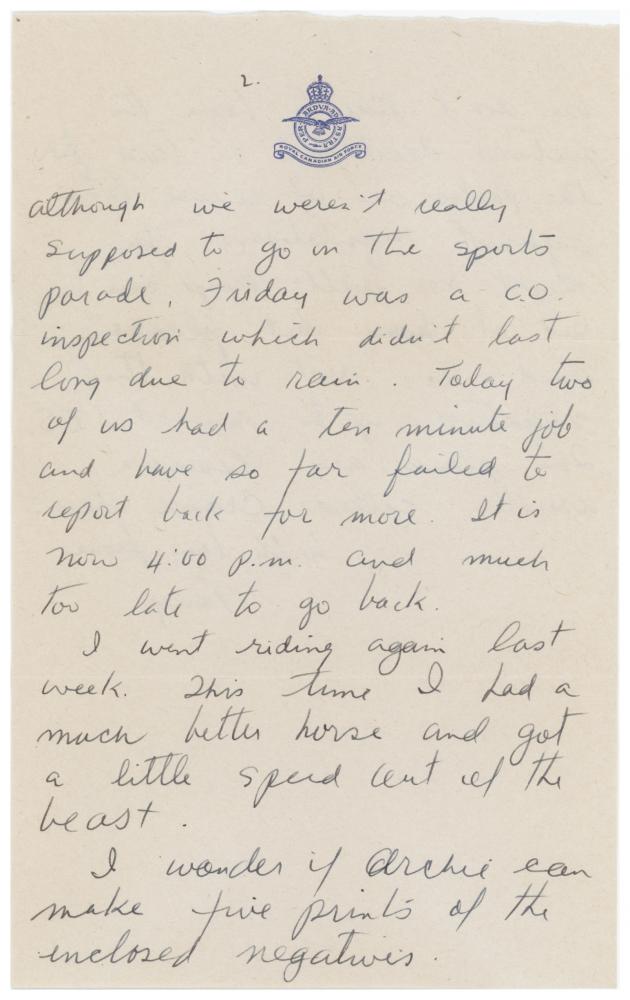 2.
PER ARDVA AD ASTRA
ROYAL CANADIAN AIR FORCE
although we weren't really
supposed to go on the sports
parade. Friday was a C.O.
inspection which didn't last
long due to rain. Today two
of us had a ten minute job
and have so far failed to
report back for more. It is
now 4:00 p.m. and much
too late to go back.
I went riding again last
week. This time I had a
much better horse and got
a little speed out of the
beast.
I wonder if Archie can
make five prints of the
enclosed negatives.